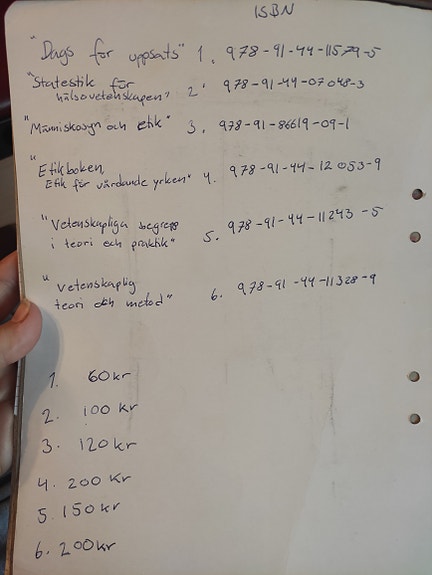 ISBN
"Dags för uppsats" 1. 978-91-44-11579-5
"Statestik för
hälsovetenskapen" 2. 978-91-44-07048-3
"Människosyn och etik" 3. 978-91-86619-09-1
"Etikboken,
Etik för vårdande yrken" 4. 978-91-44-12053-9
"Vetenskapliga begrepp
i teori och praktik" 5. 978-91-44-11243-5
"Vetenskaplig
teori och metod" 6. 978-91-44-11328-9
1. 60kr
2. 100 kr
3. 120kr
4. 200 Kr
5. 150kr
6. 200kr